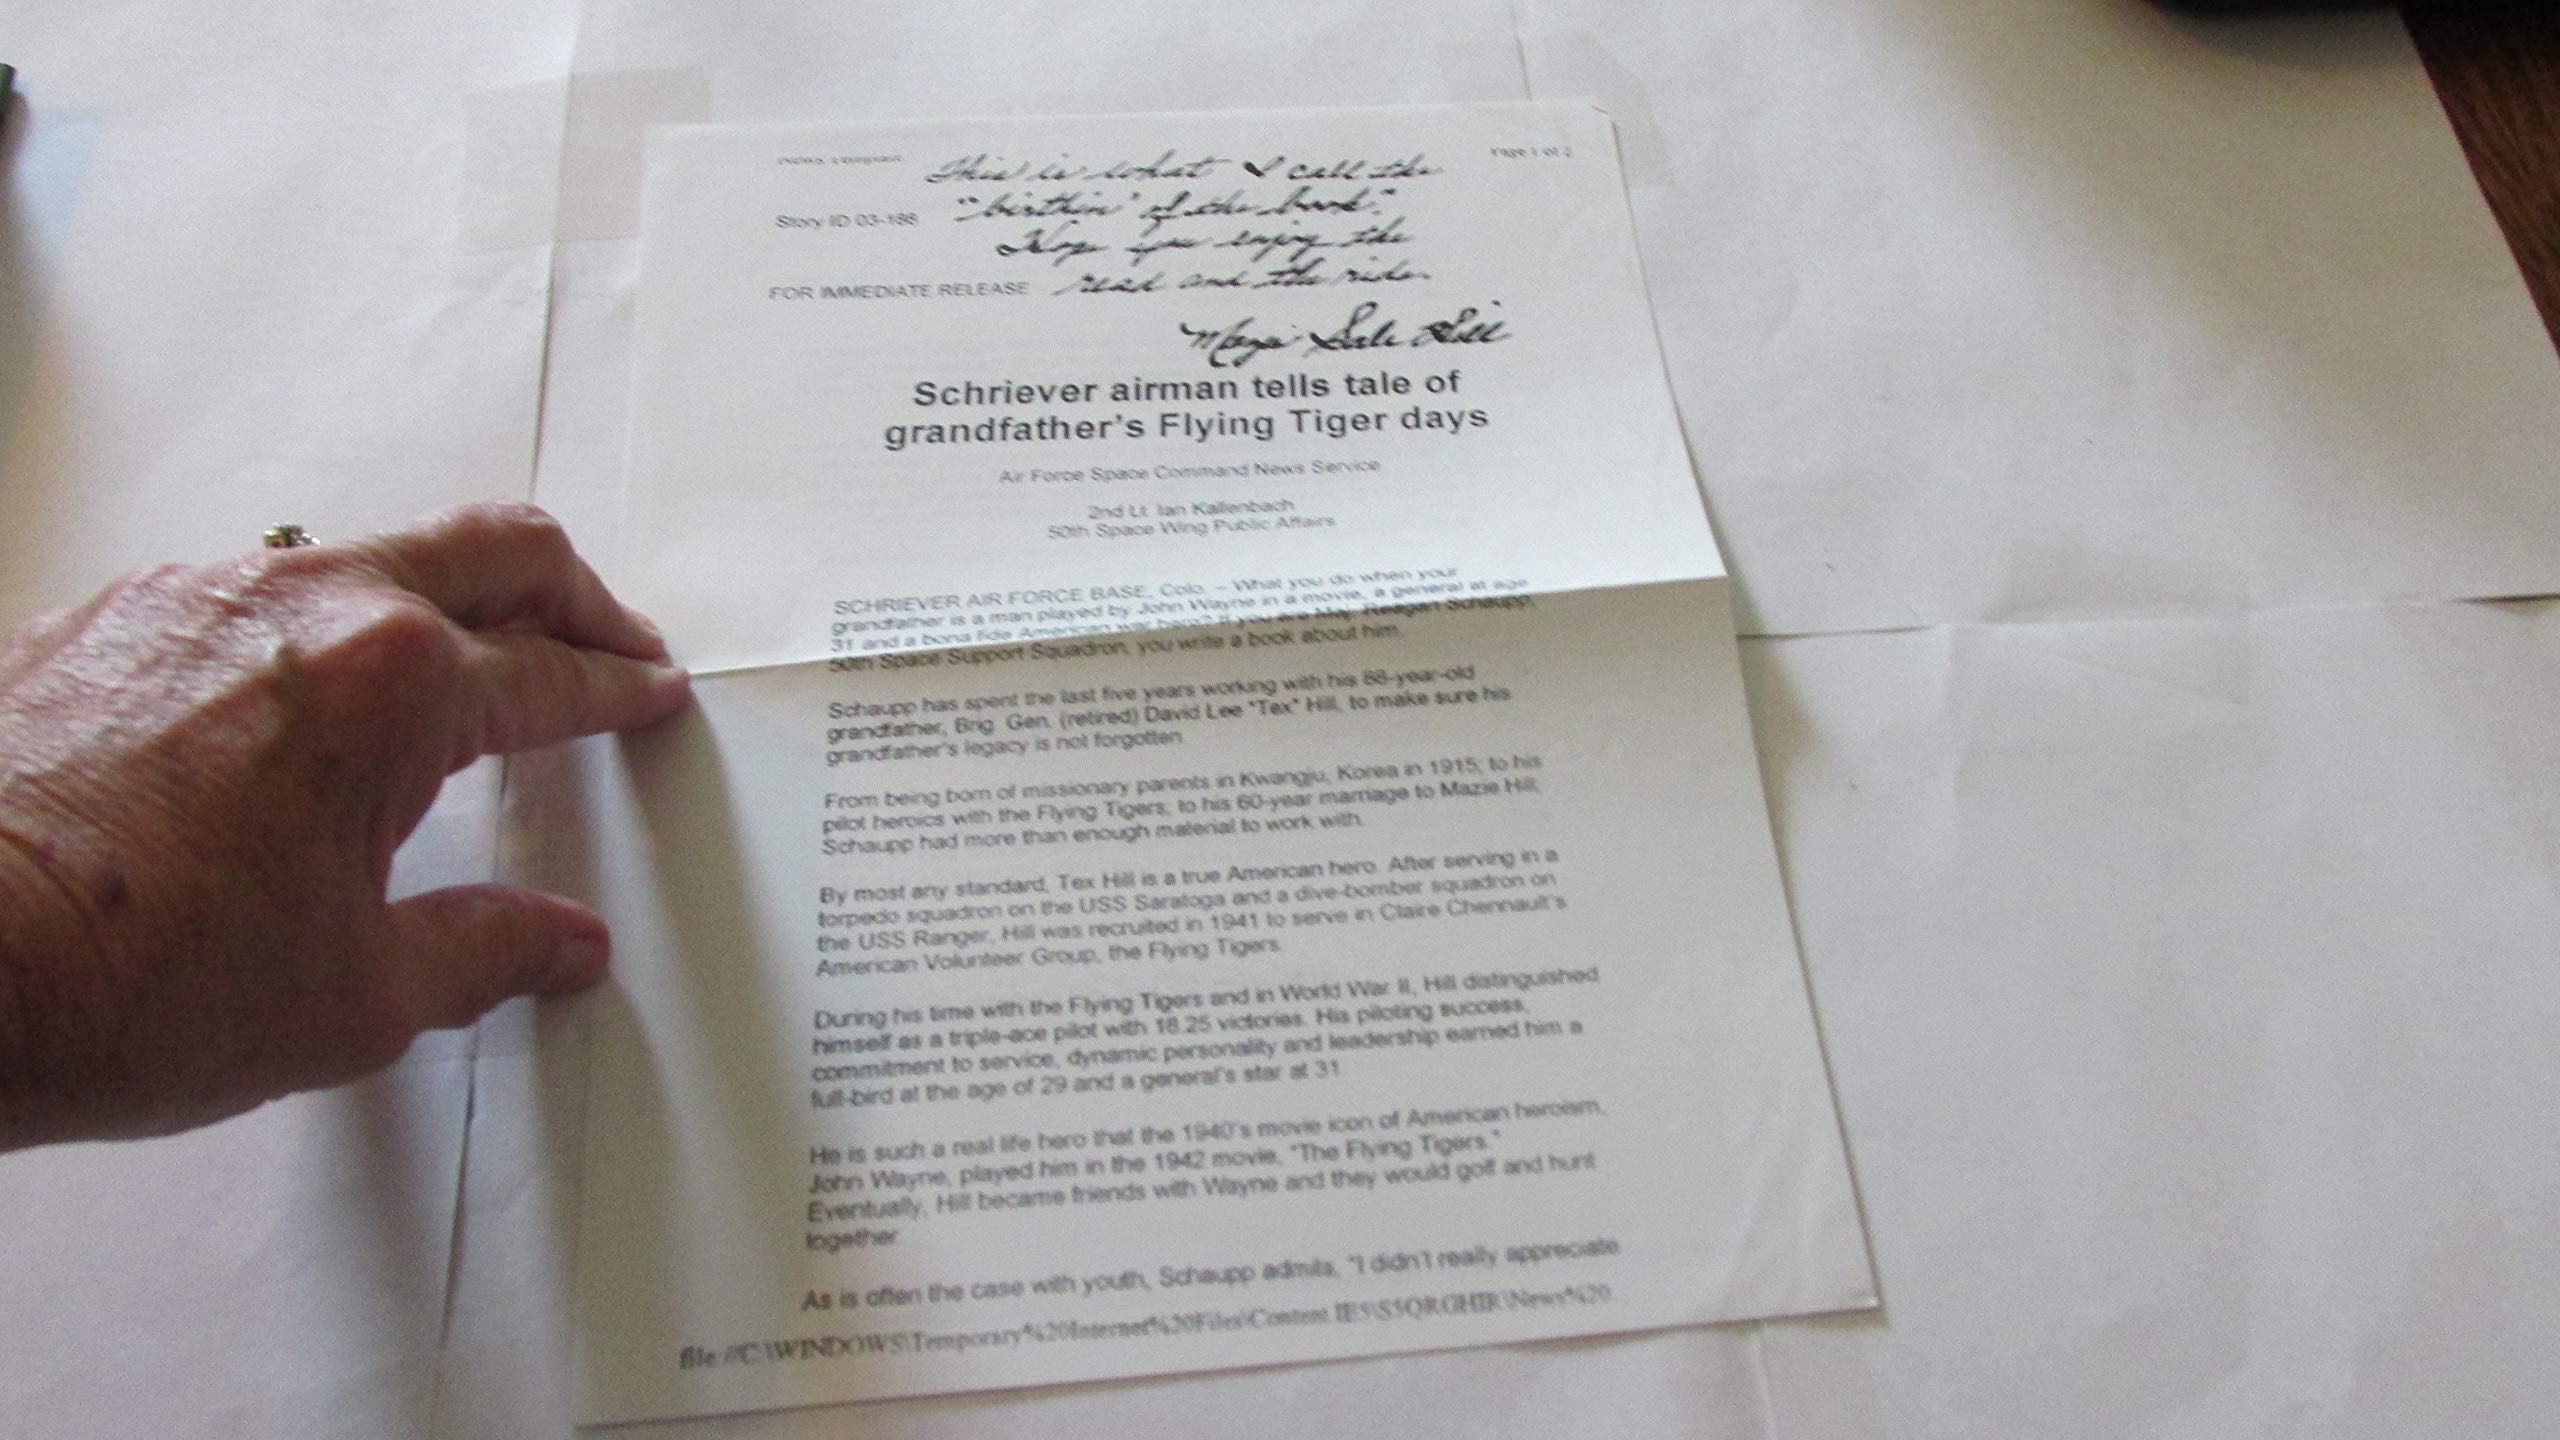 Page 1 of 2
This is what I call the
"birthin" of the book".
Story ID 03-186
Hope you enjoy the
FOR IMMEDIATE RELEASE
read and the ride.
Mazie Sale Hill
Schriever airman tells tale of
grandfather's Flying Tiger days
Air Force Space Command News Service
2nd Lt. Ian Kallenbach
50th Space Wing Public Affairs
SCHRIEVER AIR FORCE BASE, Colo. – What you do when your
grandfather is a man played by John Wayne in a movie, a general at age
31 and a bona fide American war hero? If you are Maj. Reagan Schaupp,
50th Space Support Squadron, you write a book about him.
Schaupp has spent the last five years working with his 88-year-old
grandfather, Brig. Gen. (retired) David Lee "Tex" Hill, to make sure his
grandfather's legacy is not forgotten.
From being born of missionary parents in Kwangju, Korea in 1915; to his
pilot heroics with the Flying Tigers; to his 60-year marriage to Mazie Hill;
Schaupp had more than enough material to work with.
By most any standard, Tex Hill is a true American hero. After serving in a
torpedo squadron on the USS Saratoga and a dive-bomber squadron on
the USS Ranger, Hill was recruited in 1941 to serve in Claire Chennault's
American Volunteer Group, the Flying Tigers.
During his time with the Flying Tigers and in World War II, Hill distinguished
himself as a triple-ace pilot with 18.25 victories. His piloting success,
commitment to service, dynamic personality and leadership earned him a
full-bird at the age of 29 and a general's star at 31.
He is such a real life hero that the 1940's movie icon of American heroism,
John Wayne, played him in the 1942 movie, "The Flying Tigers."
Eventually, Hill became friends with Wayne and they would golf and hunt
together.
As is often the case with youth, Schaupp admits, "I didn't really appreciate
file://C:\WINDOWS\Temporary%20Internet%20Files\Content.IE5\S5QRGHIR\News%20